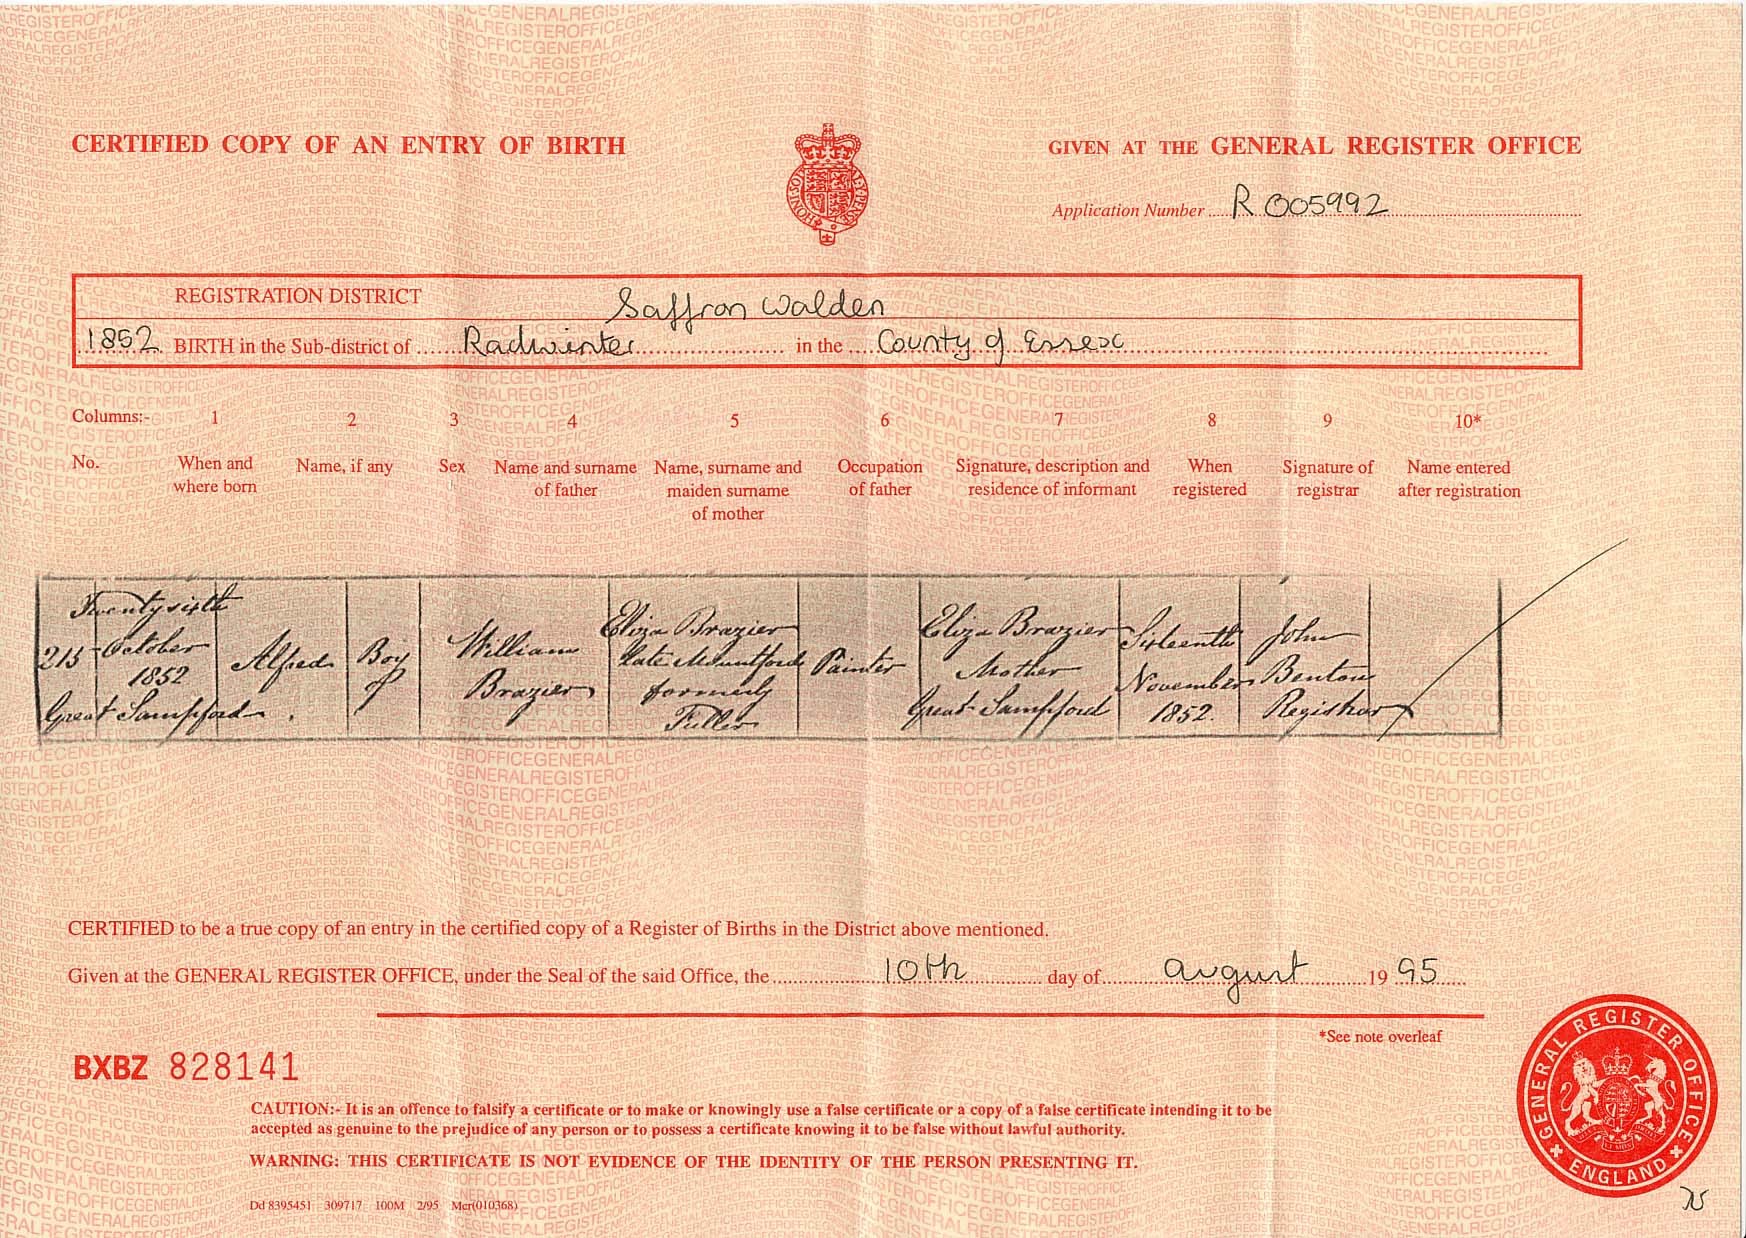 CERTIFIED COPY OF AN ENTRY OF BIRTH
GIVEN AT THE GENERAL REGISTER OFFICE
Application Number R 005992
REGISTRATION DISTRICT Saffron Walden
1852 BIRTH in the Sub-district of Radwinter in the County of Essex
Columns:- 1 2 3 4 5 6 7 8 9 10*
No. When and where born Name, if any Sex Name and surname of father Name, surname and maiden surname of mother Occupation of father Signature, description and residence of informant When registered Signature of registrar Name entered after registration
215 Twentysixth October 1852 Great Sampford Alfred Boy William Brazier Eliza Brazier late Mountford formerly Fuller Painter Eliza Brazier Mother Great Sampford Sixteenth November 1852. John Benton Registrar
CERTIFIED to be a true copy of an entry in the certified copy of a Register of Births in the District above mentioned.
Given at the GENERAL REGISTER OFFICE, under the Seal of the said Office, the 10th day of august 19 95
*See note overleaf
BXBZ 828141
CAUTION:- It is an offence to falsify a certificate or to make or knowingly use a false certificate or a copy of a false certificate intending it to be
accepted as genuine to the prejudice of any person or to possess a certificate knowing it to be false without lawful authority.
WARNING: THIS CERTIFICATE IS NOT EVIDENCE OF THE IDENTITY OF THE PERSON PRESENTING IT.
Dd 8395451 309717 100M 2/95 Mcr(010368)
GENERAL REGISTER OFFICE
ENGLAND